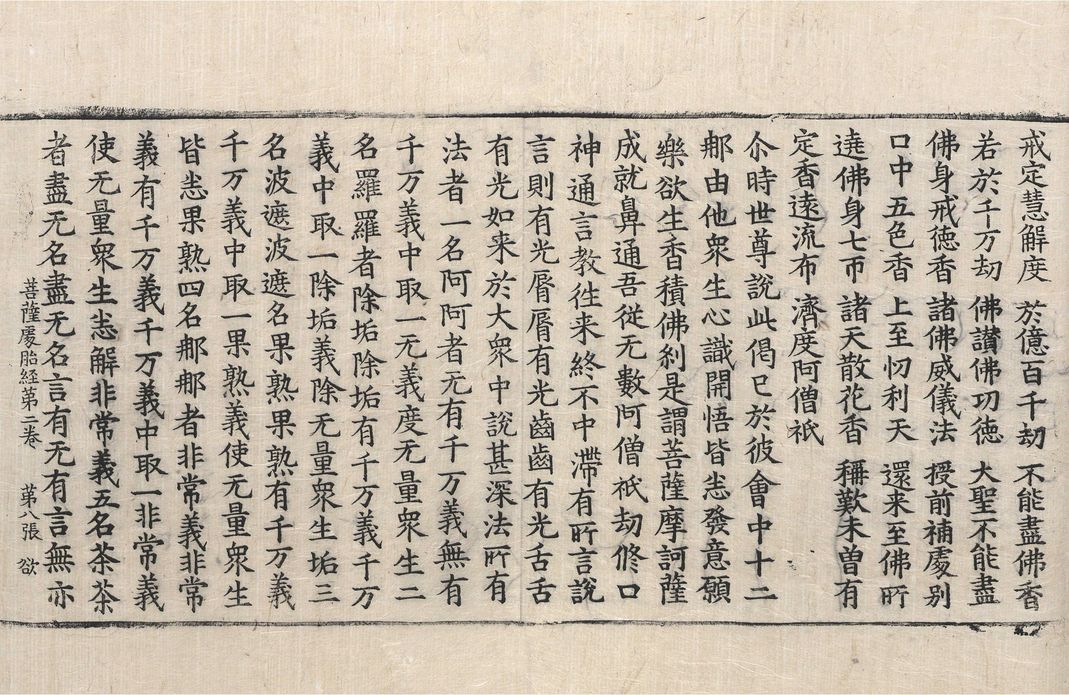 戒定慧解度 於億百千劫 不能盡佛香
若於千万劫 佛讃佛功徳 大聖不能盡
佛身戒徳香 諸佛威儀法 授前補處别
口中五色香 上至忉利天 還来至佛所
遶佛身七帀 諸天散花香 稱歎未曽有
定香遠流布 濟度阿僧祇
尒時世尊說此偈已於彼會中十二
那由他衆生心識開悟皆悉發意願
樂欲生香積佛刹是謂菩薩摩訶薩
成就鼻通吾従无數阿僧祇劫修口
神通言教徃来終不中滯有所言說
言則有光脣脣有光齒齒有光舌舌
有光如来於大衆中說甚深法所有
法者一名阿阿者无有千万義無有
千万義中取一无義度无量衆生二
名羅羅者除垢除垢有千万義千万
義中取一除垢義除无量衆生垢三
名波遮波遮名果熟果熟有千万義
千万義中取一果熟義使无量衆生
皆悉果熟四名那那者非常義非常
義有千万義千万義中取一非常義
使无量衆生悉解非常義五名茶茶
者盡无名盡无名言有无有言無亦
菩薩處胎經第二卷 第八張 欲